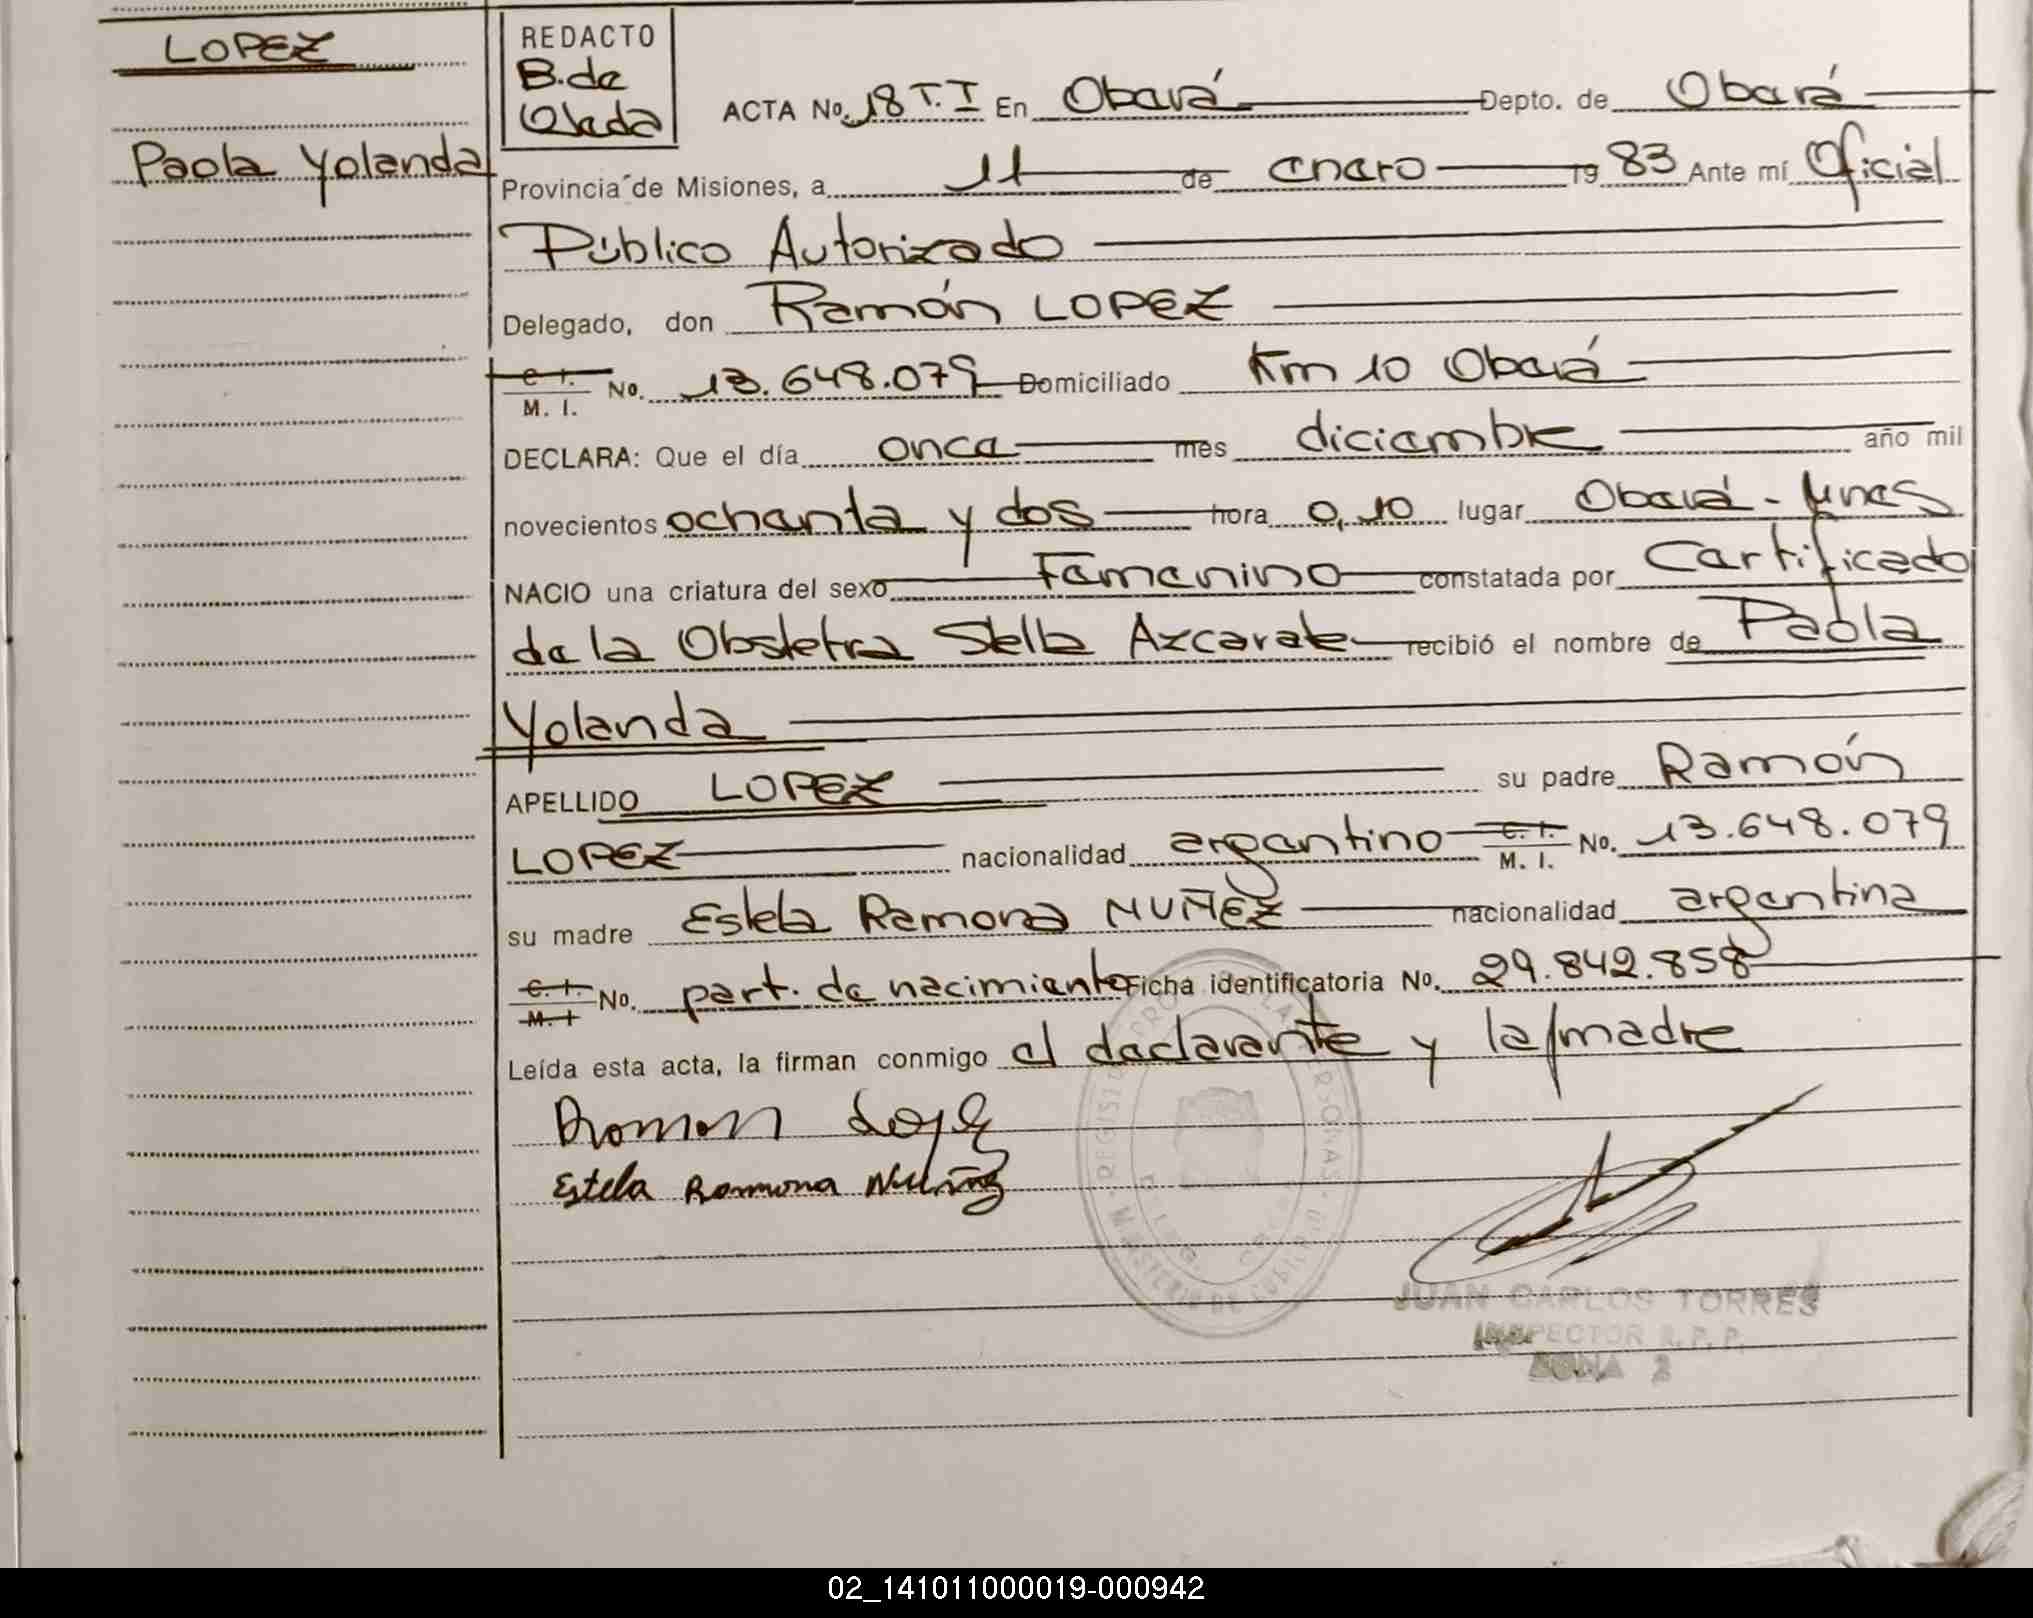 LOPEZ
Paola Yolanda
REDACTO
B. de
Olada
ACTA No. 18 T. I En Oberá Depto. de Oberá
Provincia de Misiones, a 11 de enero 19 83 Ante mí Oficial
Público Autorizado
Delegado, don Ramón LOPEZ
C. I. M. I. No. 13.648.079 Domiciliado Km 10 Oberá
DECLARA: Que el día once mes diciembre año mil
novecientos ochenta y dos hora 0,10 lugar Oberá - Mnes
NACIO una criatura del sexo Femenino constatada por Certificado
de la Obstetra Stella Azcarate recibió el nombre de Paola
Yolanda
APELLIDO LOPEZ su padre Ramón
LOPEZ nacionalidad argentino C. I. M. I. No. 13.648.079
su madre Estela Ramona NUÑEZ nacionalidad argentina
C. I. M. I No. part. de nacimiento Ficha identificatoria No. 29.842.858
Leída esta acta, la firman conmigo el declarante y la madre
Ramon Lopez
Estela Ramona Nuñez
JUAN CARLOS TORRES
INSPECTOR R. P. P.
ZONA 2
02_141011000019-000942